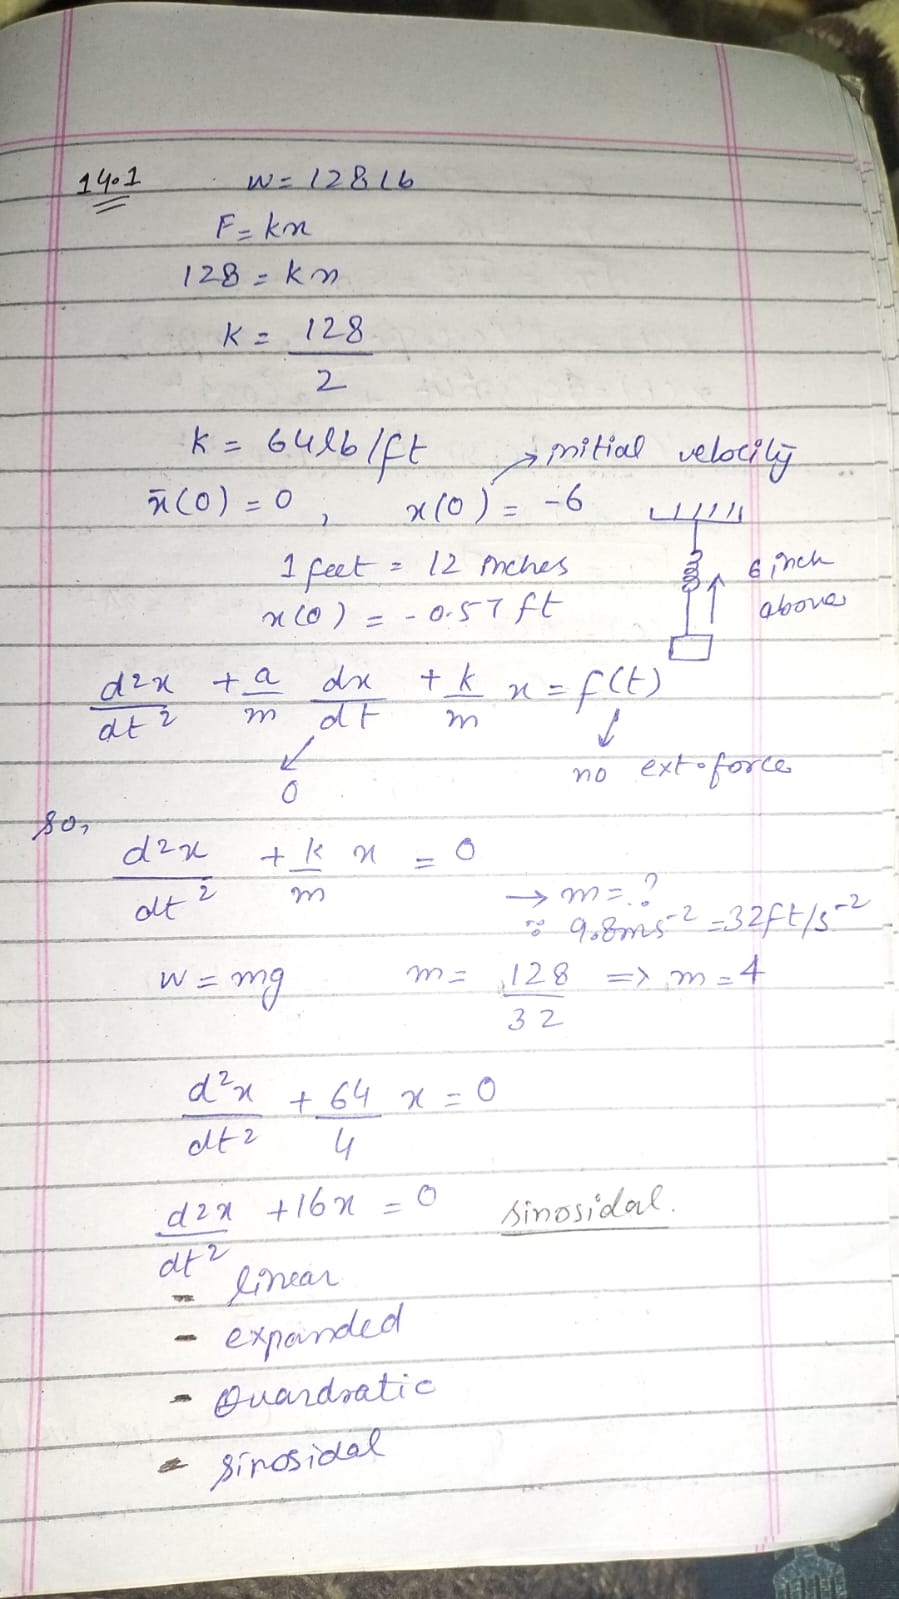 14.1 W = 128 lb
F = kx
128 = kx
k = 128/2
k = 64 lb/ft → initial velocity
ẍ(0) = 0 , x(0) = -6
1 feet = 12 inches 6 inch
x(0) = -0.57 ft above
d2x/dt2 + a/m dx/dt + k/m x = f(t)
↓ 0 ↓ no ext. force
So,
d2x/dt2 + k/m x = 0
→ m = ?
∵ 9.8ms-2 = 32ft/s-2
W = mg m = 128/32 => m = 4
d2x/dt2 + 64/4 x = 0
d2x/dt2 + 16x = 0 sinosidal.
- linear
- expanded
- Quardratic
- Sinosidal